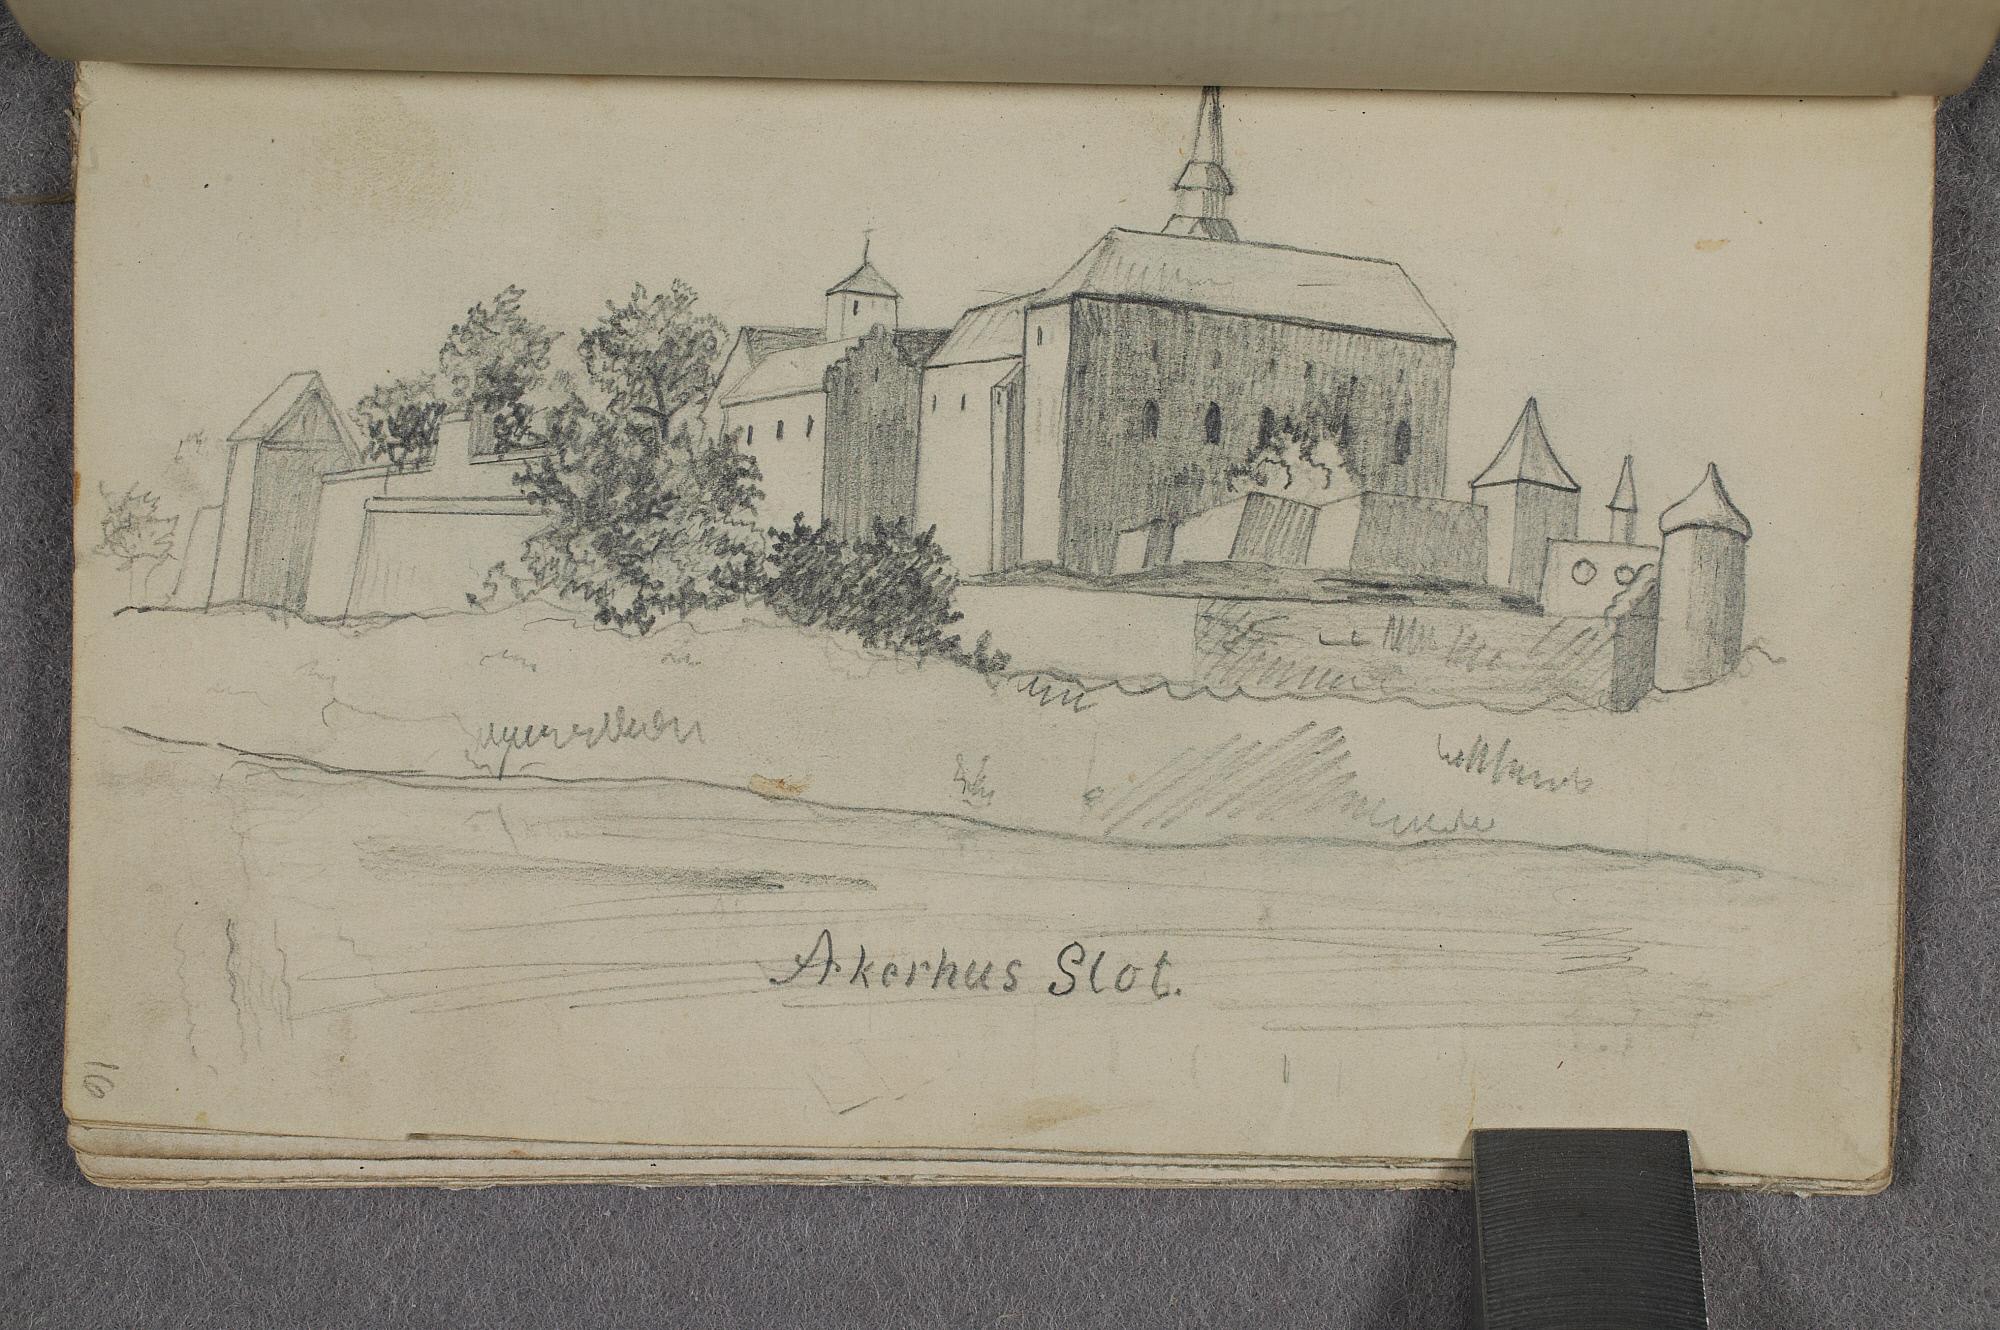 Akerhus Slot.
16